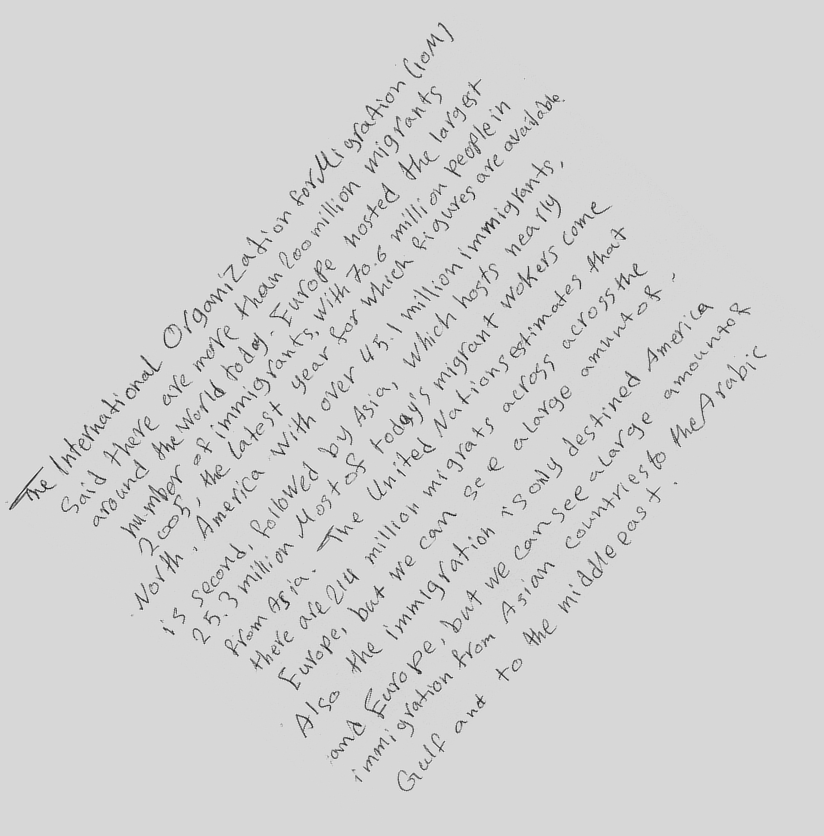 The International Organization for Migration (IOM)
Said there are more than 200 million migrants
around the World today. Europe hosted the largest
number of immigrants, with 70.6 million people in
2005, the latest year for which figures are available.
North America with over 45.1 million immigrants,
is second, followed by Asia, which hosts nearly
25.3 million Most of today's migrant wokers come
from Asia. The United Nations estimates that
there are 214 million migrats across across the
Europe, but we can see a large amunt of.
Also the immigration is only destined America
and Europe, but we can see a large amount of
immigration from Asian countries to the Arabic
Gulf and to the middle east.